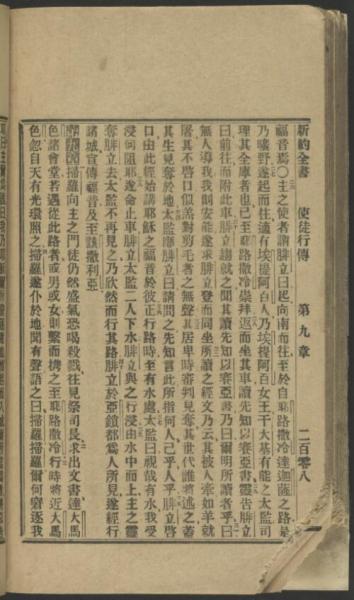 新約全書　使徒行傳　第九章　二百零八
福音焉○主之使者謂腓立曰起向南而往至於自耶路撒冷達迦薩之路是
乃曠野遂起而往適有埃提阿百人乃埃提阿百女王干大基有能之太監司
理其全庫者也已至耶路撒冷崇拜返而坐其車讀先知以賽亞書靈告腓立
曰前往而附此車腓立趨就之聞其讀先知以賽亞書乃曰爾明所讀者乎曰
無人導我我則安能遂求腓立登而同坐所讀之經文乃云其被人牽如羊就
屠其不啟口似羔對剪毛者之無聲其居卑時審判見奪其世代誰將述之蓋
其生見奪於地太監謂腓立曰請問之先知言此所指何人己乎人乎腓立啟
口由此經始講耶穌之福音於彼正行路時至有水處太監曰視哉有水我受
浸何阻耶遂命止車腓立太監二人下水腓立與之行浸由水中而上主之靈
奪腓立去太監不再見之乃欣然而行其路腓立於亞鎖都為人所見遂經行
諸城宣傳福音及至該撒利亞
掃羅向主之門徒仍然盛氣恐喝殺戮往見祭司長求出文書達大馬
色諸會堂若遇從此路者或男或女則繫而携之至耶路撒冷行時將近大馬
色忽自天有光環照之掃羅遂仆於地聞有聲語之曰掃羅掃羅爾何窘逐我